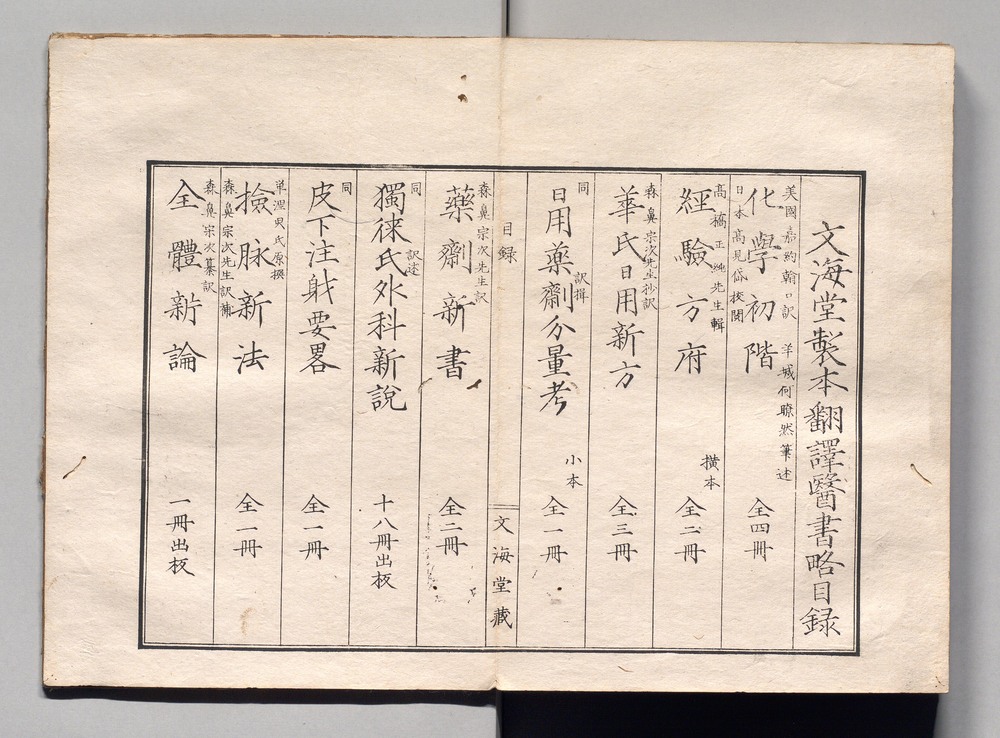 文海堂製本翻譯醫書略目録
美國嘉約翰口訳 羊城何瞭然筆述
日本高見岱校閲
化學初階 全四冊
髙橋正純先生輯
經驗方府 横本 全二冊
森鼻宗次先生抄訳
華氏日用新方 全三冊
同 訳揖
日用薬劑分量考 小本 全一冊
目録
文海堂藏
森鼻宗次先生訳
藥劑新書 全二冊
同 訳述
獨徠氏外科新説 十八冊出板
同
皮下注射要畧 全一冊
単涅吴氏原撰
森鼻宗次先生訳補
撿脉新法 全一冊
森鼻宗次纂訳
全體新論 一冊出板